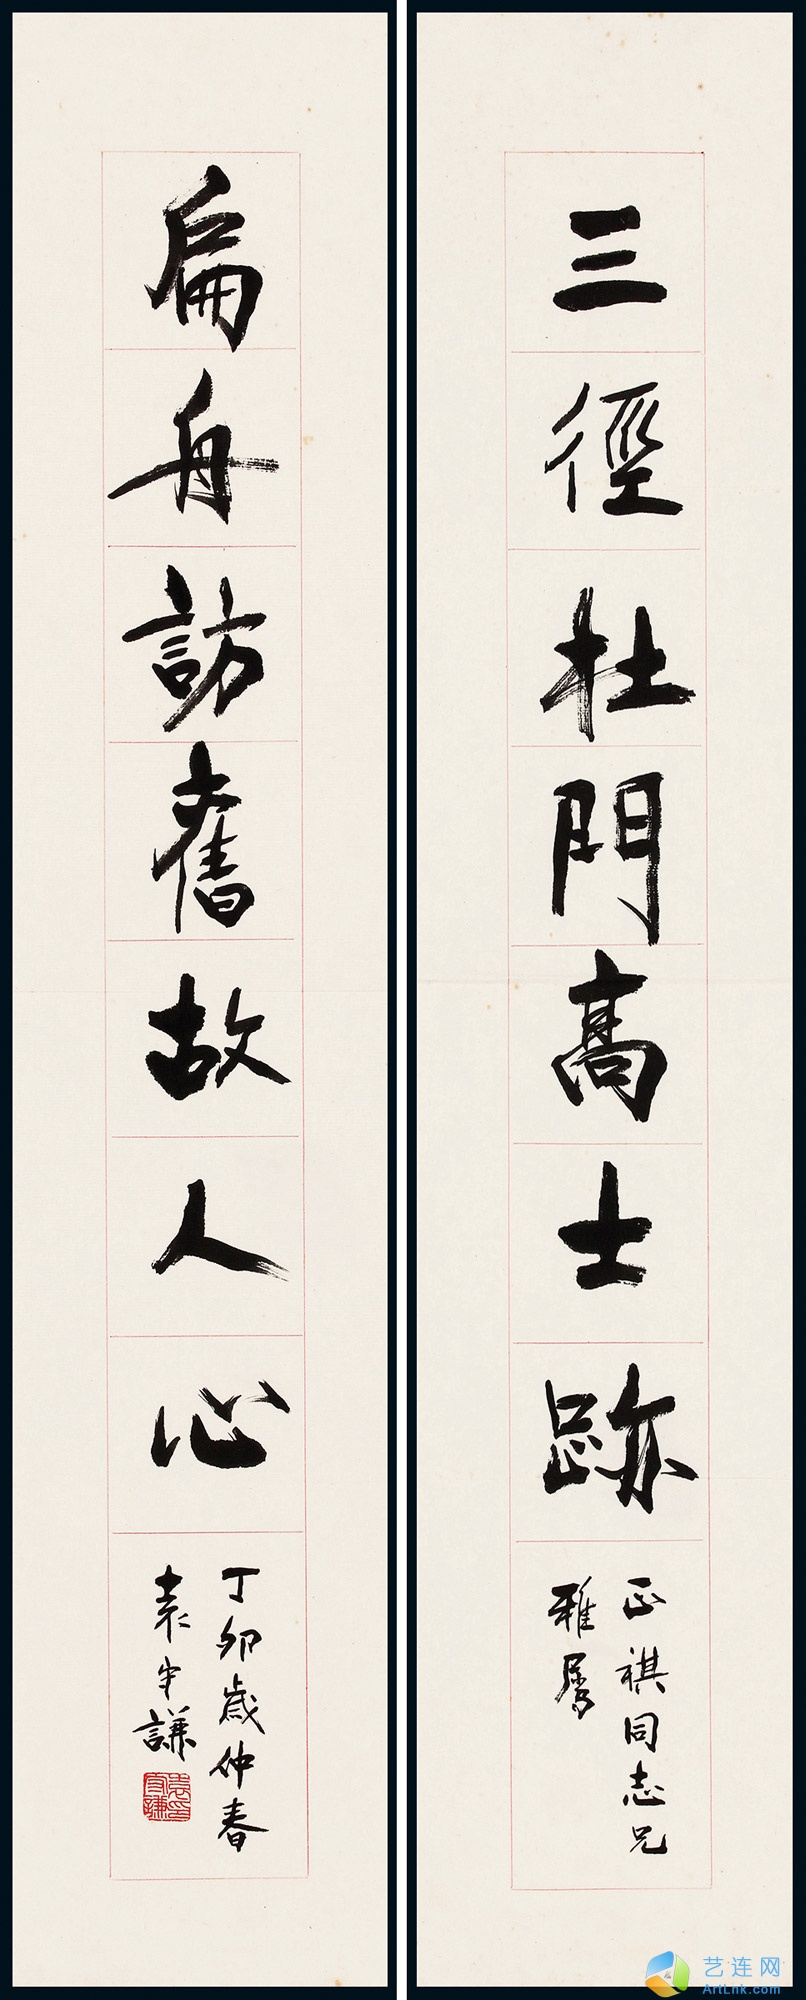 三徑杜門高士跡
正祺同志兄
雅屬
扁舟訪舊故人心
丁卯歲仲春
袁守謙
袁守謙印
艺连网
ArtLnk.com